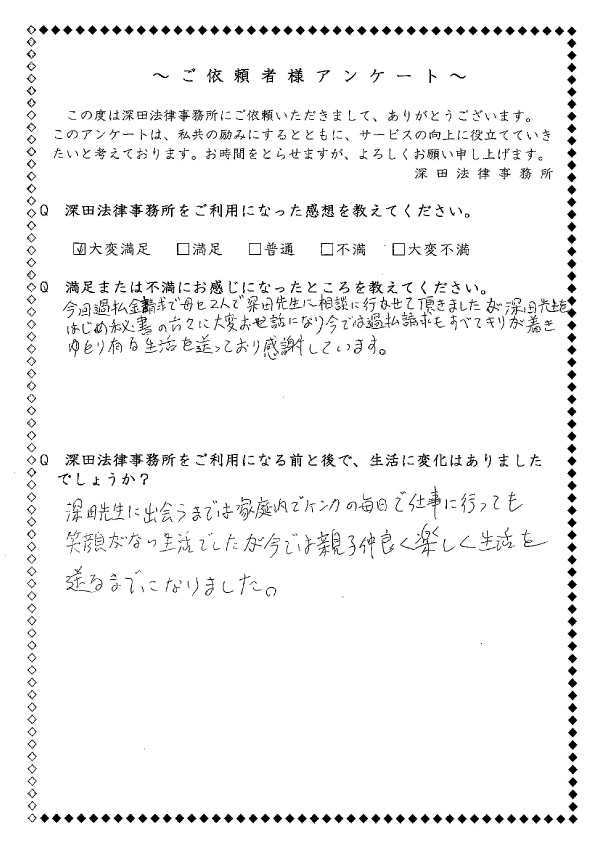 ～ご依頼者様アンケート～
この度は深田法律事務所にご依頼いただきまして、ありがとうございます。
このアンケートは、私共の励みにするとともに、サービスの向上に役立てていき
たいと考えております。お時間をとらせますが、よろしくお願い申し上げます。
深田法律事務所
Q 深田法律事務所をご利用になった感想を教えてください。
☑大変満足 □満足 □普通 □不満 □大変不満
Q 満足または不満にお感じになったところを教えてください。
今回過払金請求で母と2人で深田先生に相談に行かせて頂きましたが深田先生を
はじめ秘書の方々に大変お世話になり今では過払請求もすべてきりが着き
ゆとり有る生活を送っており感謝しています。
Q 深田法律事務所をご利用になる前と後で、生活に変化はありました
でしょうか？
深田先生に出会うまでは家庭内でケンカの毎日で仕事に行っても
笑顔がない生活でしたが今では親子仲良く楽しく生活を
送るまでになりました。